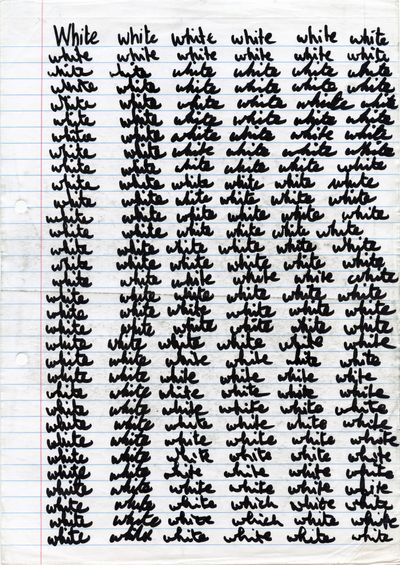 White white white white white white
white white white white white white
white white white white white white
white white white white white white
white white white white white white
white white white white white white
white white white white white white
white white white white white white
white white white white white white
white white white white white white
white white white white white white
white white white white white white
white white white white white white
white white white white white white
white white white white white white
white white white white white white
white white white white white white
white white white white white white
white white white white white white
white white white white white white
white white white white ite white
white white white white white white
white white white white white white
white white white white white white
white white white white white white
white white white white white white
white white white white white white
white white white white white white
white white white white white white
white white white which white white
white white white which white white
white white white white white white